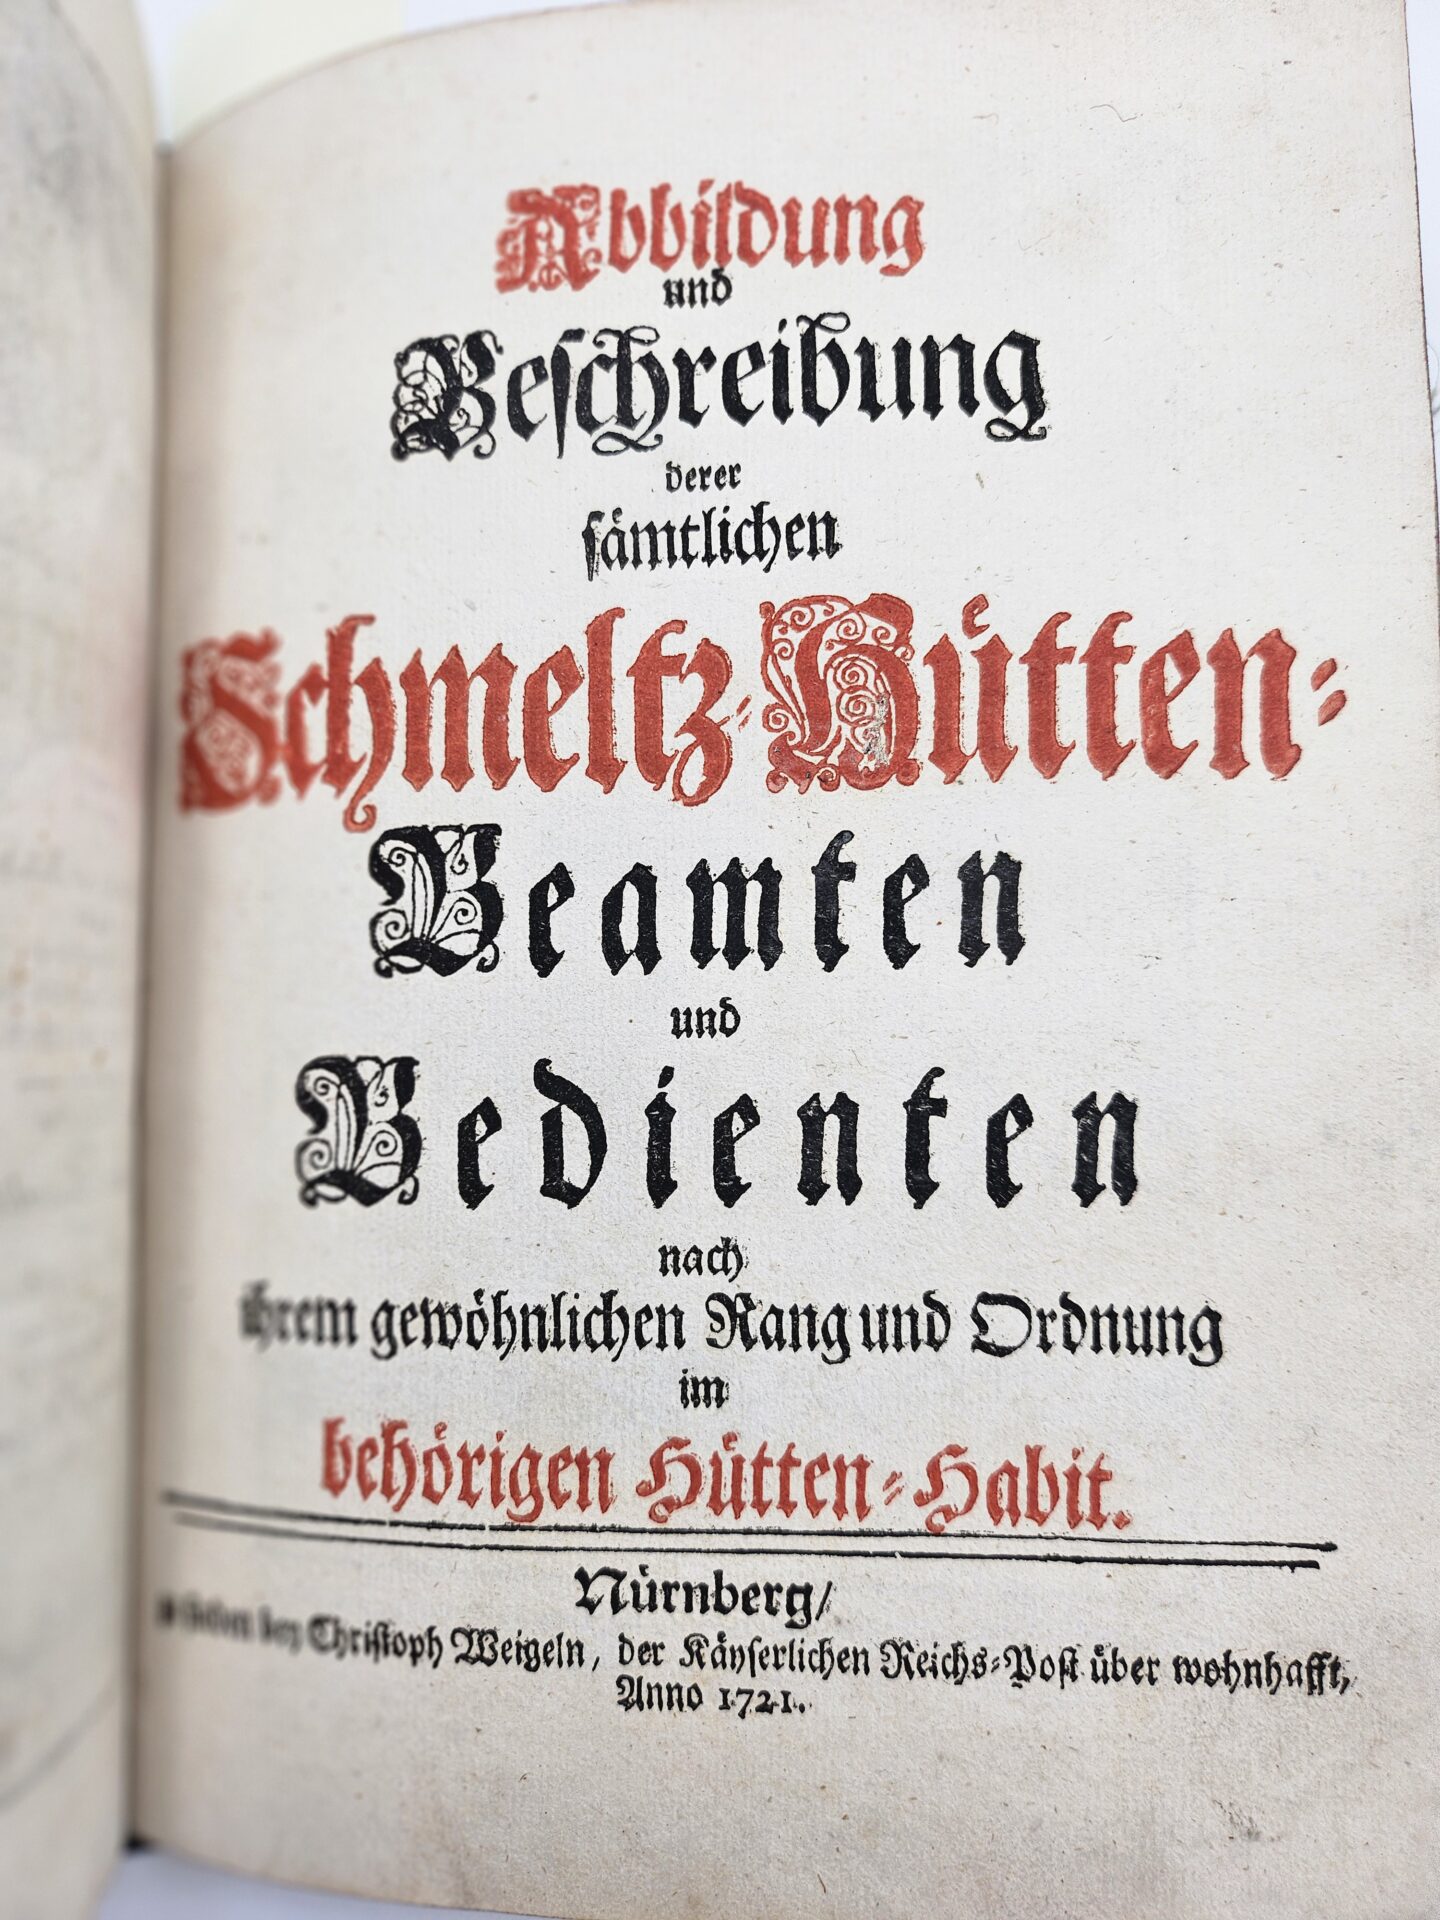 Abbildung
und
Beschreibung
derer
sämtlichen
Schmeltz-Hütten-
Beamten
und
Bedienten
nach
ihrem gewöhnlichen Rang und Ordnung
im
behörigen Hütten-Habit.
Nürnberg/
bey Christoph Weigeln, der Käyserlichen Reichs-Post über wohnhafft,
Anno 1721.